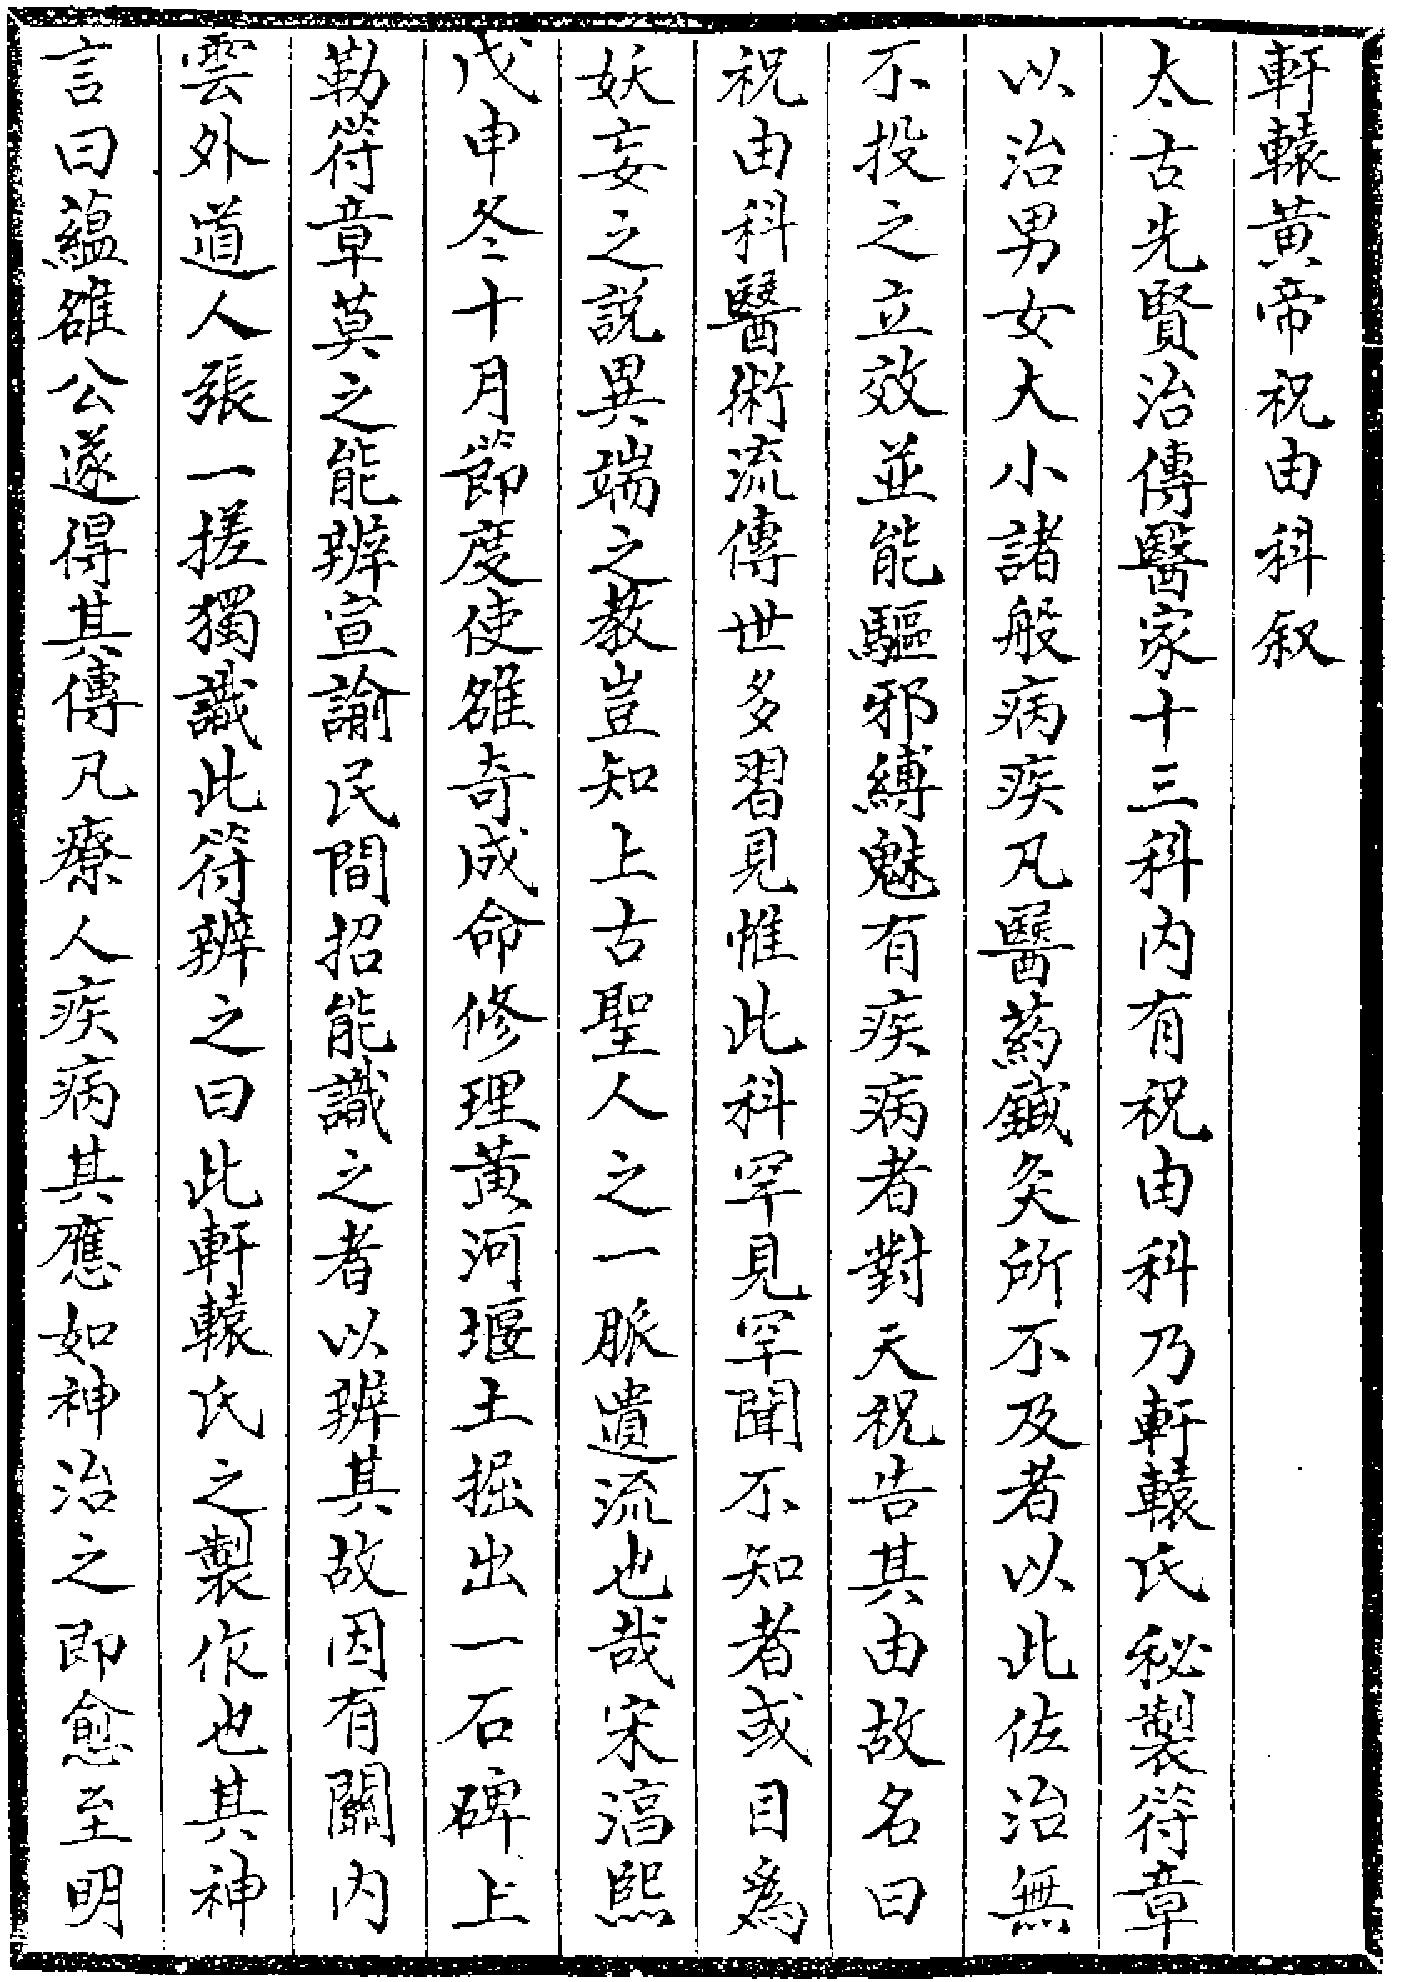 軒轅黃帝祝由科叙
太古先賢治傳醫家十三科内有祝由科乃軒轅氏秘製符章
以治男女大小諸般病疾凡醫葯鍼灸所不及者以此佐治無
不投之立效並能驅邪縛魅有疾病者對天祝告其由故名曰
祝由科醫術流傳世多習見惟此科罕見罕聞不知者或目為
妖妄之説異端之教豈知上古聖人之一脈遺流也哉宋淳熙
戊申冬十月節度使雒奇成命修理黃河堰土掘出一石碑上
勒符章莫之能辨宣諭民間招能識之者以辨其故因有關内
雲外道人張一搓獨識此符辨之曰此軒轅氏之製作也其神
言曰蘊雒公遂得其傳凡療人疾病其應如神治之即愈至明